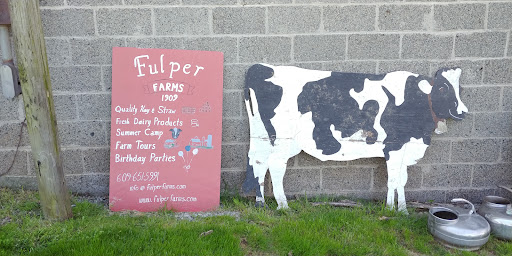 Fulper
FARMS
1909
Quality Hay & Straw
Fresh Dairy Products
Summer Camp
Farm Tours
Birthday Parties
609 651 5991
info@fulper-farms.com
www.fulperfarms.com